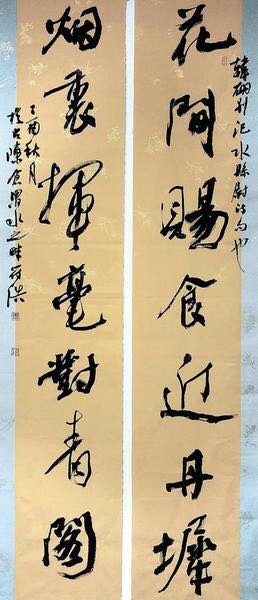 韓翃別汜水縣尉詩句也
花間賜食近丹墀
烟裏揮毫對青閣
酉秋月
於古陳倉渭水之畔